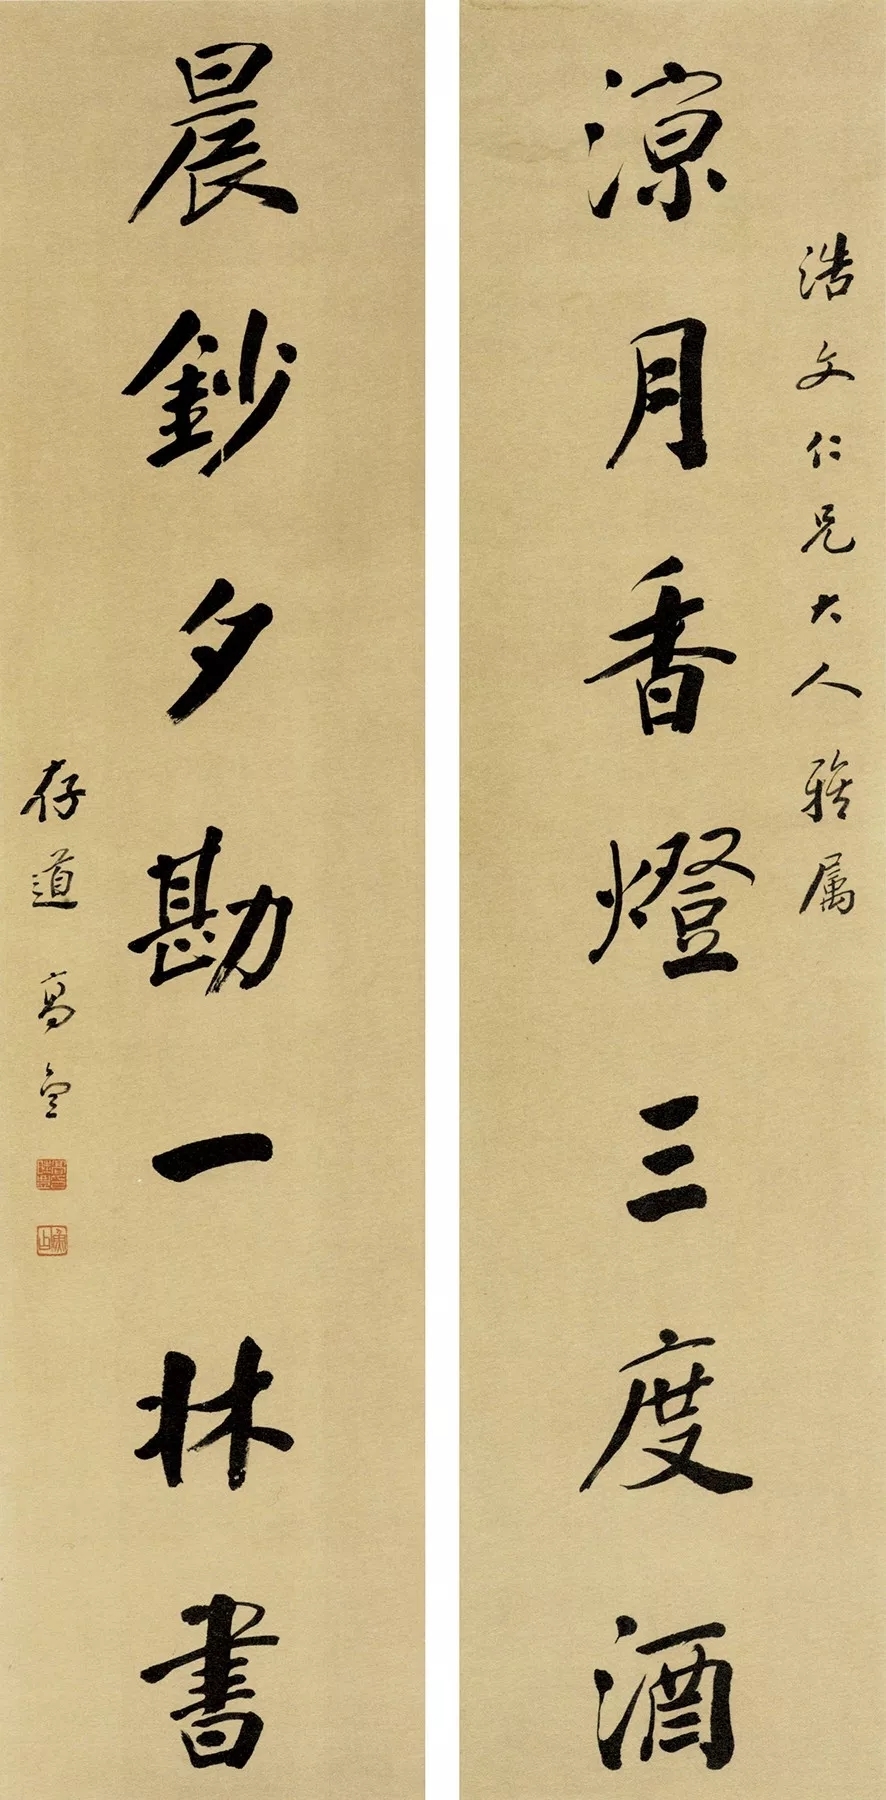 浩文仁兄大人雅属
涼月香燈三度酒
晨鈔夕勘一牀書
存道